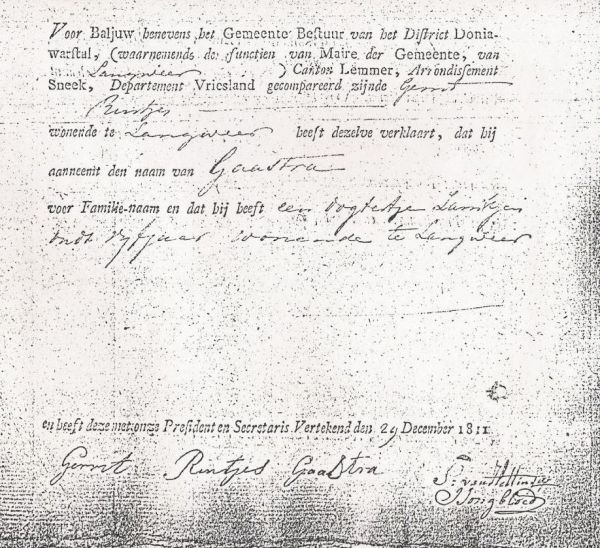 Voor Baljuw benevens het Gemeente Bestuur van het District Donia-
warstal, (waarnemende de functien van Maire der Gemeente, van
Langweer ) Canton Lemmer, Arrondissement
Sneek, Departement Vriesland gecompareerd zijnde Gerrit
Rintjes
wonende te Langweer heeft dezelve verklaart, dat hij
aanneemt den naam van Gaastra
voor Familie-naam en dat hij heeft een dogtertje
oudt vyf jaar woonende te Langweer
en heeft deze met onze President en Secretaris Vertekend den 29 December 1811.
Gerrit Rintjes Gaastra
Jongbloed